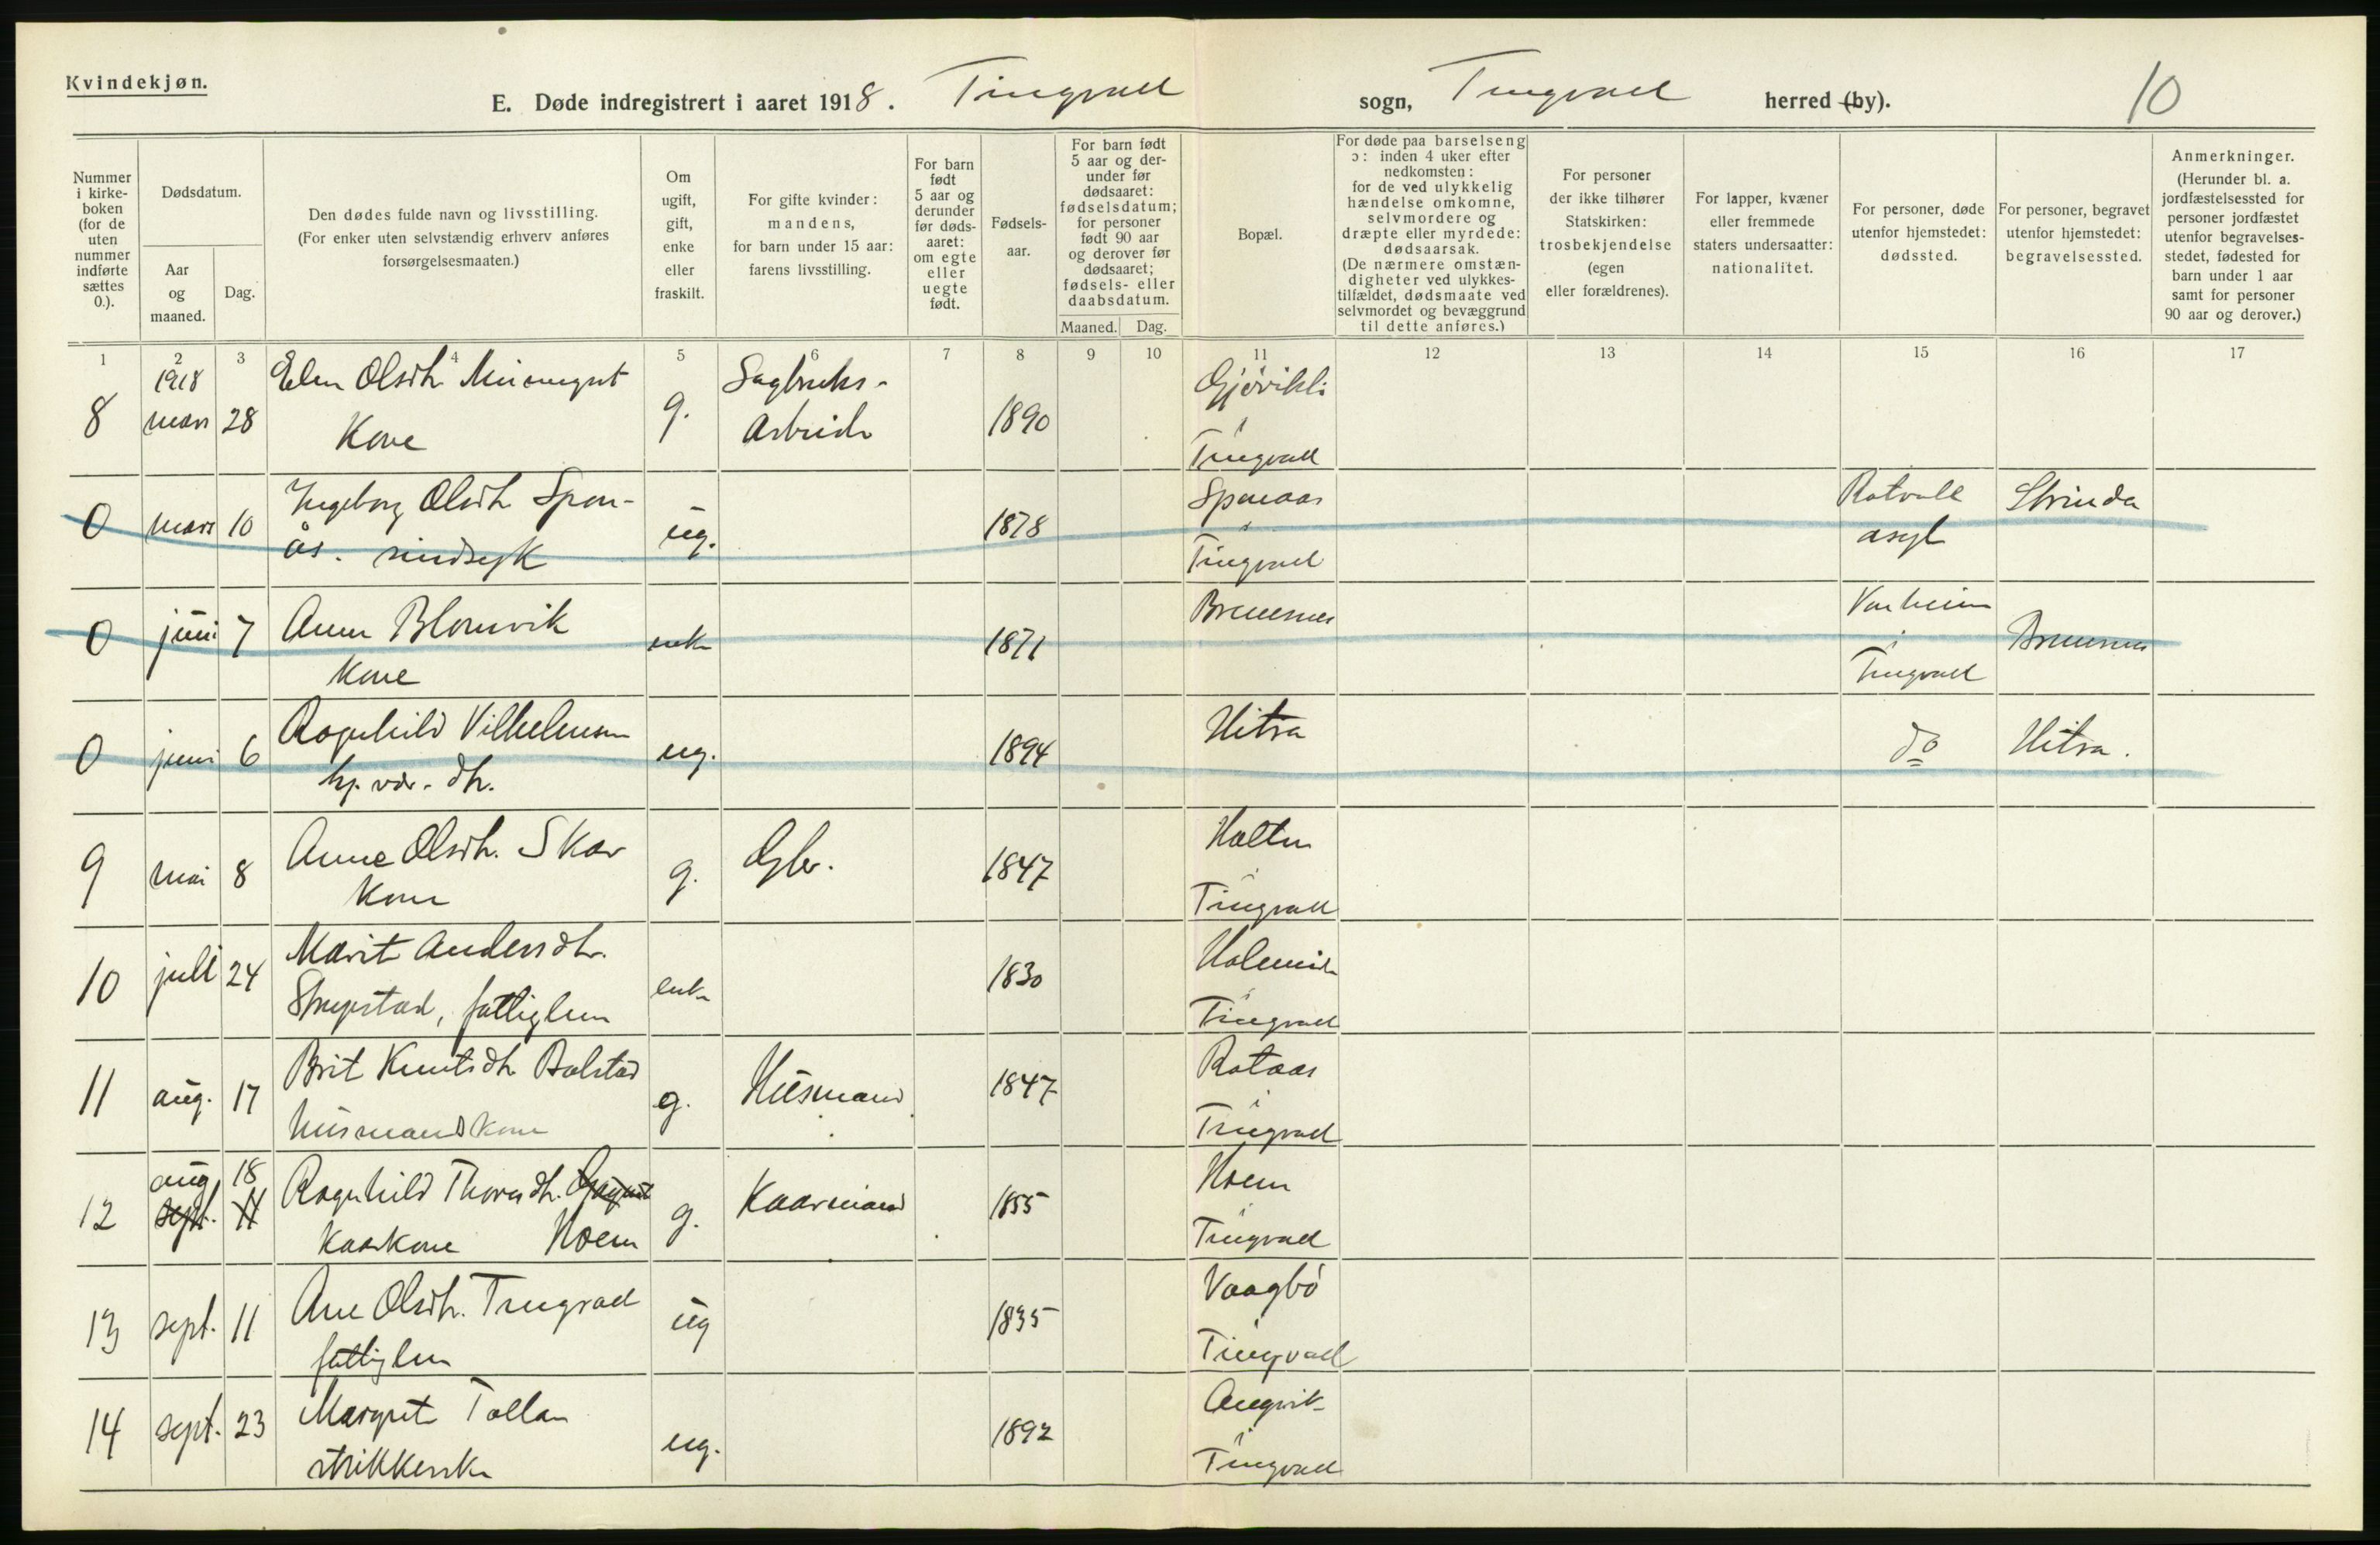 Kvindekjøn.
E. Døde indregistrert i aaret 1918. Tingvoll sogn, Tingvoll herred (by). 10
Nummer i kirkeboken (for de uten nummer indførte sættes 0.).
Dødsdatum.
Aar og maaned.
Dag.
Den dødes fulde navn og livsstilling.
(For enker uten selvstændig erhverv anføres forsørgelsesmaaten.)
Om ugift, gift, enke eller fraskilt.
For gifte kvinder: mandens, for barn under 15 aar: farens livsstilling.
For barn født 5 aar og derunder før dødsaaret: om egte eller uegte født.
Fødselsaar.
For barn født 5 aar og derunder før dødsaaret: fødselsdatum; for personer født 90 aar og derover før dødsaaret; fødsels- eller daabsdatum.
Maaned. Dag.
Bopæl.
For døde paa barselseng ɔ: inden 4 uker efter nedkomsten: for de ved ulykkelig hændelse omkomne, selvmordere og dræpte eller myrdede: dødsaarsak.
(De nærmere omstændigheter ved ulykkestilfældet, dødsmaate ved selvmordet og bevæggrund til dette anføres.)
For personer der ikke tilhører Statskirken: trosbekjendelse (egen eller forældrenes).
For lapper, kvæner eller fremmede staters undersaatter: nationalitet.
For personer, døde utenfor hjemstedet: dødssted.
For personer, begravet utenfor hjemstedet: begravelsessted.
Anmerkninger.
(Herunder bl. a. jordfæstelsessted for personer jordfæstet utenfor begravelsesstedet, fødested for barn under 1 aar samt for personer 90 aar og derover.)
1 2 3 4 5 6 7 8 9 10 11 12 13 14 15 16 17
1918 Elen Olsdtr Sagbruks- Gjøvikli
8 mars 28 Kone g. Arbeider 1890 i Tingvoll
0 mars 10 Ingeborg Olsdtr Spon- ug. 1878 Sponaas Rotvoll Strinda
ås. sindsyk i Tingvoll asyl
0 juni 7 Anna Blomvik enke 1871 Bremsnes i Bremsnes
kone Tingvoll
0 juni 6 Ragnhild Vilhelmsen ug. 1894 Hitra do Hitra.
dtr.
9 mai 8 Anne Olsdtr. Skar g. Gbr. 1847 Holten
Kone i Tingvoll
10 juli 24 Marit Andersdtr. enke 1830
fattiglem i Tingvoll
11 aug. 17 Brit Knutsdtr Bolstad g. Husmand 1847 Rotaas
husmandskone i Tingvoll
aug 18
12 sept. 11 Ragnhild Thoresdtr. g. Kaarmand 1855 Hoem
Kaarkone Hoem i Tingvoll
13 sept. 11 Ane Olsdtr. Tingvoll ug 1835 Vaagbø
fattiglem Tingvoll
14 sept. 23 Margret Tollan ug. 1892 Angvik
strikkerske i Tingvoll